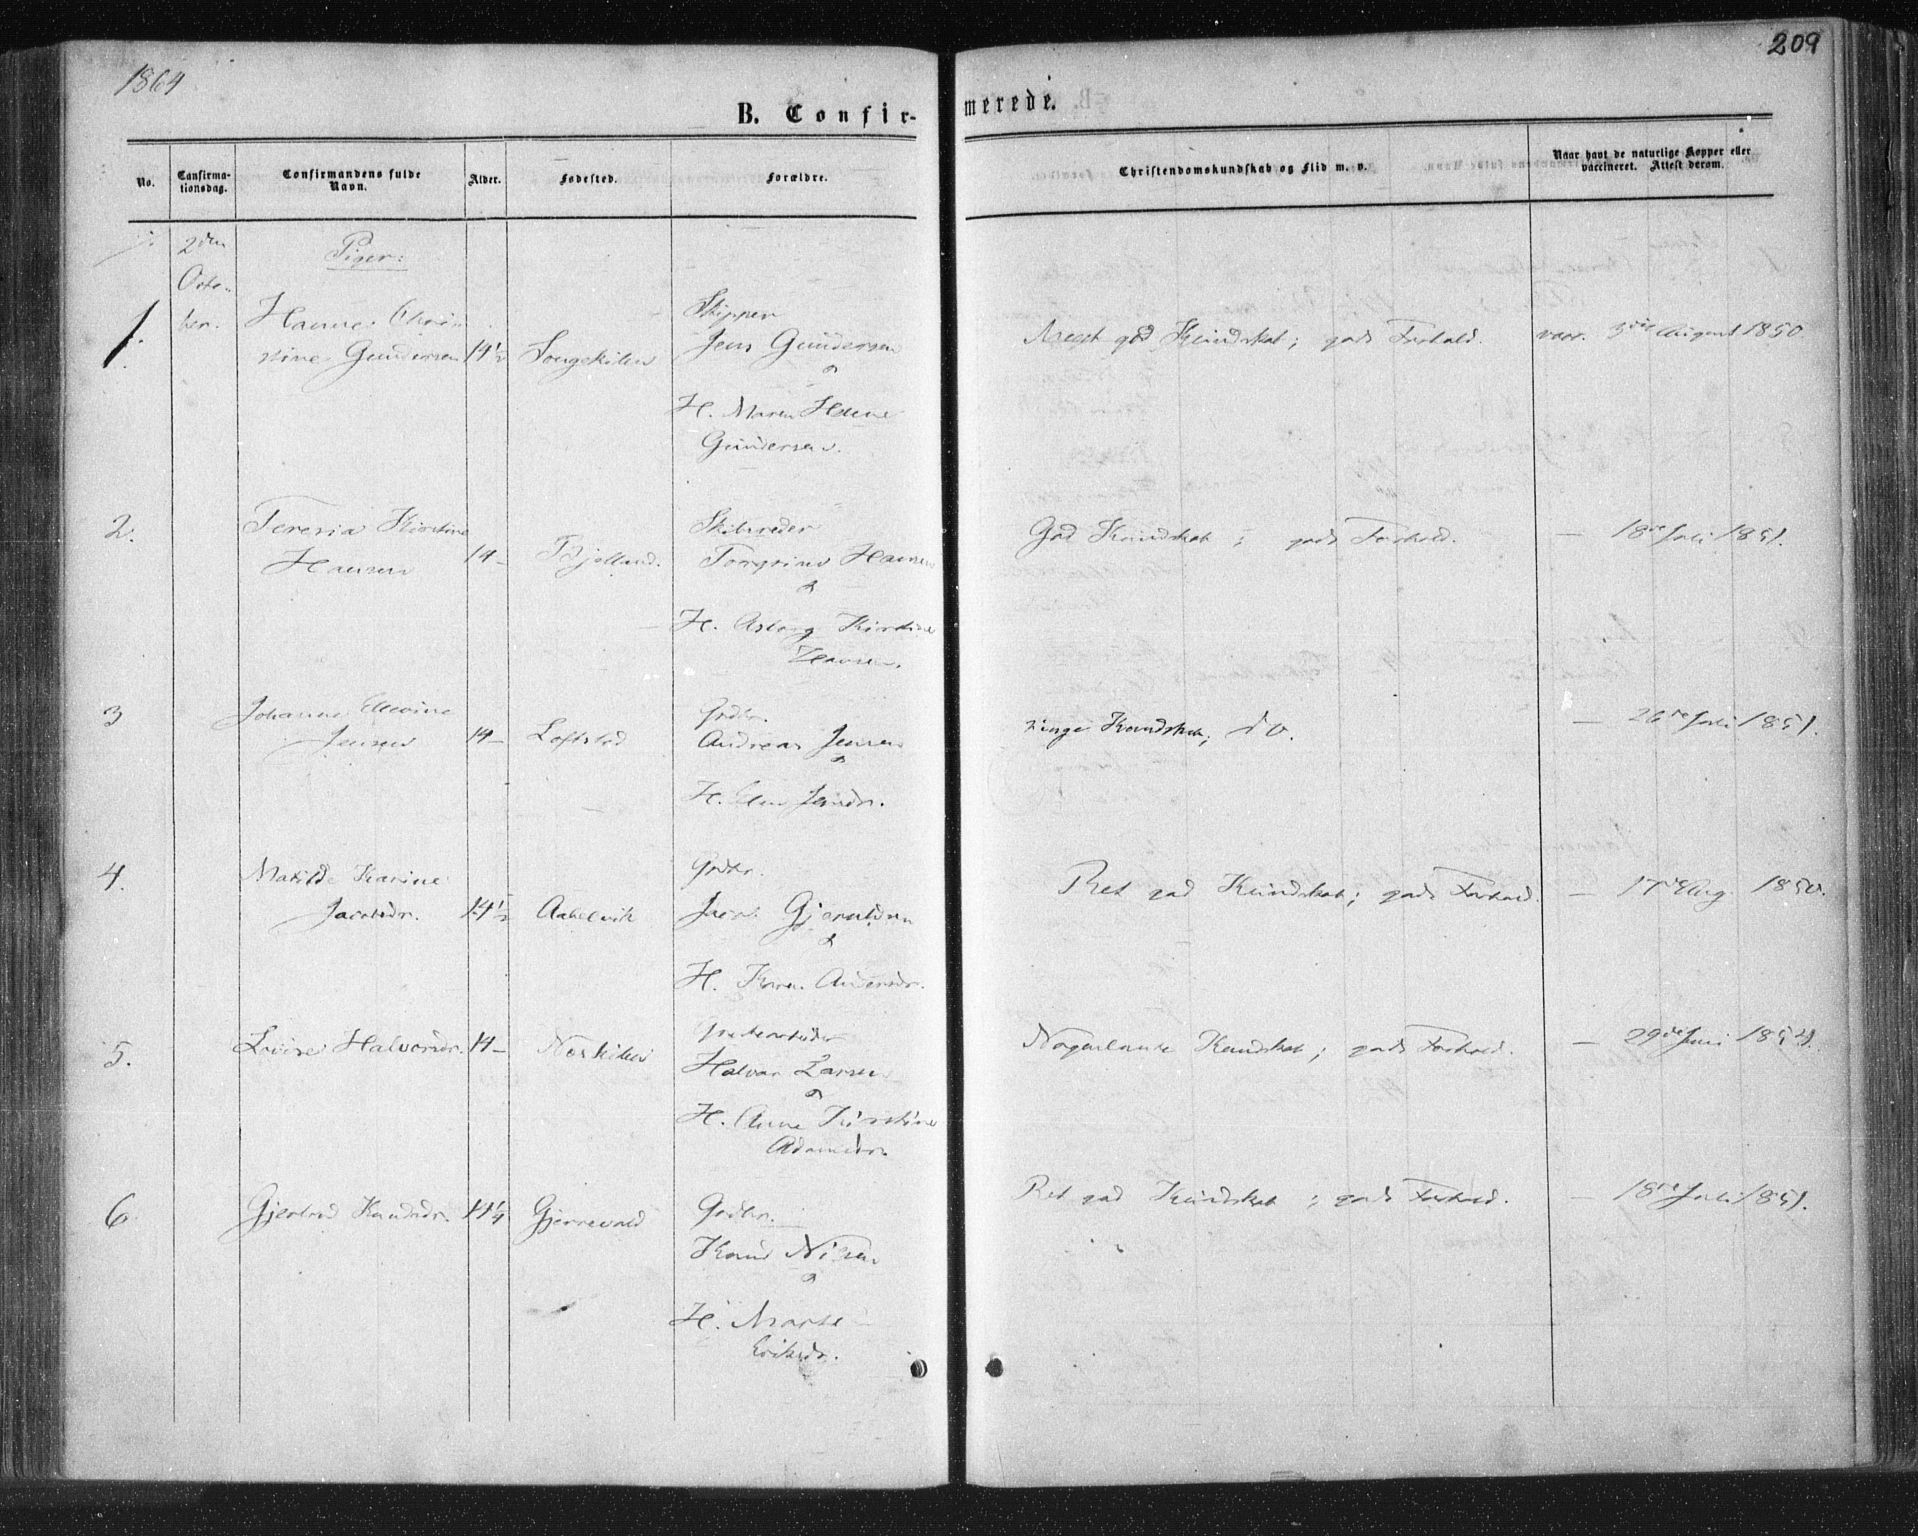 1864
209
B. Confir-
merede.
No.
Confirma-
tionsdag.
Confirmandens fulde
Navn.
Alder.
Fødested.
Forældre.
Christendomskundskab og Flid m. v.
Naar havt de naturlige Kopper eller
vaccineret. Attest derom.
2den
Octo-
ber.
Piger:
1.
Hanne Chri-
stine Gundersen
14½
Songekilen
Skipper
Jens Gundersen
&
H. Maren Helene
Gundersen.
Meest god Kundskab; godt Forhold.
vacc. 3die August 1850
2.
Teresia Kirstine
Hansen
14-
Bjelland.
Skibsreder
Torgrinus Hansen
&
H. Asborg Kirstine
Hansen.
God Kundskab; godt Forhold.
— 18de Juli 1851.
3
Johanne Elevine
Jensen
14-
Løftstad
Grdbr.
Andreas Jensen
&
H. Elen Jensdr.
ringe Kundskab; do.
— 26de Juli 1851.
4.
Matilde Karine
Jacobsdr.
14½
Aakelvik
Grdbr.
Jacob Gjeruldsen
&
H. Karen Andersdr.
Ret god Kundskab; godt Forhold.
— 17de Aug. 1850.
5.
Lovise Halvorsdr.
14-
Neskilen
Halvor Larsen
&
H. Anne Kirstine
Adamsdr.
Nogenlunde Kundskab; godt Forhold.
— 29de Juni
6
Gjertrud Knudsdr.
14¼
Gjerrevold
Grdbr.
Knud Nilsen
&
H. Marte
Eriksdr.
Ret god Kundskab; godt Forhold.
— 18de Juli 1851.